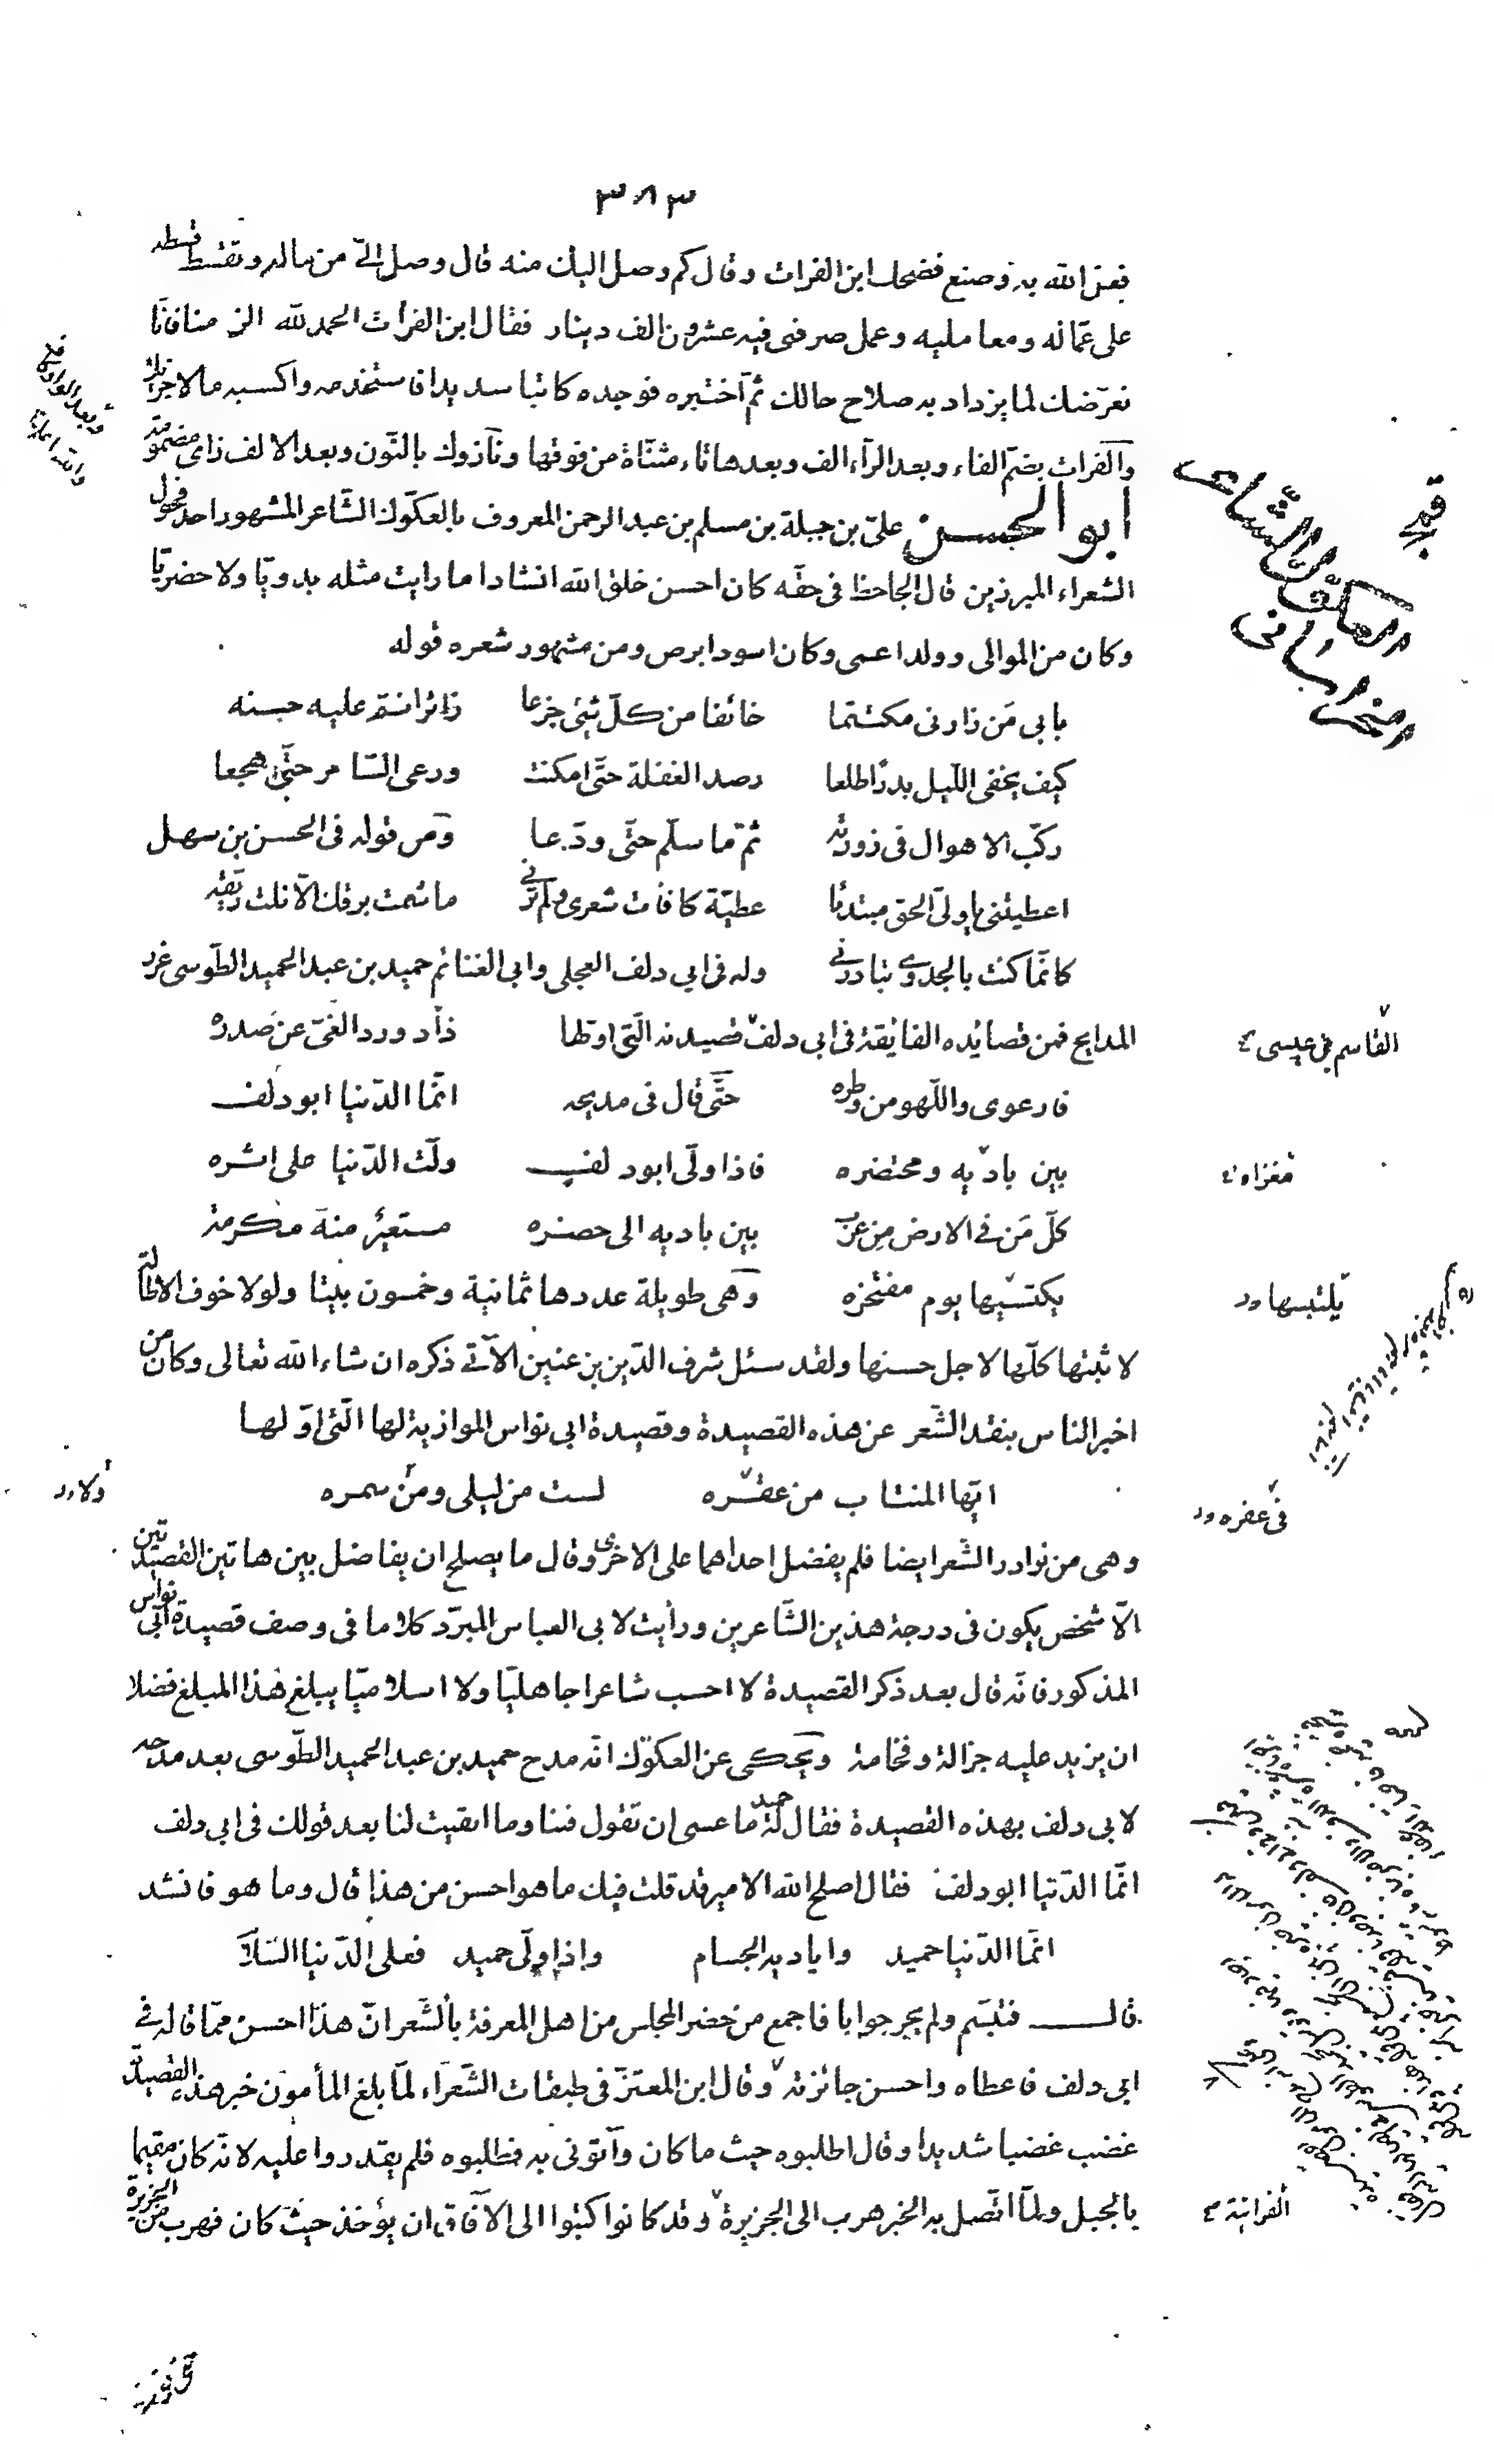 ٣٨٣
فعل الله به وصنع فضحك ابن الفرات وقال كم وصل اليك منه قال وصل الىّ من ماله وتقسّط قسطه
على عمّاله ومعامليه وعمل صرفنى فيه عشرون الف دينار فقال ابن الفرات الحمد لله
تعرّضك لما يزداد به صلاح حالك ثم اختبره فوجده كاتبا سديدا فاستخدمه واكسبه مالا جزيلا
والفرات بضمّ الفاء وبعد الرآء الف وبعدها تاء مثنّاة من فوقها ونازوك بالنّون وبعد الالف زاى مضمومة
ابو الحسن علىّ بن جبلة بن مسلم بن عبد الرحمن المعروف بالعكوّك الشّاعر المشهور احد فحول
الشعراء المبرزين قال الجاحظ فى حقّه كان احسن خلق الله انشادا ما رايت مثله بدويّا ولا حضريّا
وكان من الموالى وولد اعمى وكان اسود ابرص ومن مشهور شعره قوله
بابى مَن زارنى مكتتما خائفا من كلّ شئ جزعا زائرا نمّ عليه حسنه
كيف يخفى اللّيل بدرًا طلعا رصد الغفلة حتّى امكنت ورعى السّامر حتّى هجعا
ركب الاهوال فى زورته ثمّ ما سلّم حتّى ودّعا ومن قوله فى الحسن بن سهل
اعطيتنى يا ولىّ الحق مبتدئا عطيّة كافأت شعرى ولم ترنى ما شمت برقك الّا نلت ريّقه
كانّما كنت بالجدوى تبادرنى وله فى ابى دلف العجلى وابى الغنائم حميد بن عبد الحميد الطّوسى غرر
المدايح فمن قصائده الفايقة فى ابى دلف قصيدته الّتى اوّلها ذاد ورد الغىّ عن صدره
القاسم بن عيسى
فارعوى واللّهو من وطره حتّى قال فى مديحه انّما الدّنيا ابو دلف
بين باديه ومحتضره فاذا ولّى ابو دلف ولّت الدّنيا على اثره
مغزاه
كلّ مَن فى الارض من عرب بين باديه الى حضره مستعير منه مكرمة
يكتسيها يوم مفتخره وهى طويلة عددها ثمانية وخمسون بيتا ولولا خوف الاطالة
يلتبسها
لاثبتها كلّها لاجل حسنها ولقد سئل شرف الدّين بن عنين الآتى ذكره ان شاء الله تعالى وكان من
اخبر الناس بنقد الشّعر عن هذه القصيدة وقصيدة ابى نواس الموازية لها الّتى اوّلها
ايّها المنتاب من عفره لست من ليلى ومن سمره
فى عفره
ولا
وهى من نوادر الشّعر ايضا فلم يفضل احداهما على الاخرى وقال ما يصلح ان يفاضل بين هاتين القصيدتين
الّا شخص يكون فى درجة هذين الشّاعرين ورأيت لابى العباس المبرّد كلاما فى وصف قصيدة ابى نواس
المذكور فانّه قال بعد ذكر القصيدة لا احسب شاعرا جاهليّا ولا اسلاميّا يبلغ هذا المبلغ فضلا
ان يزيد عليه جزالة وفخامة ويحكى عن العكوّك انّه مدح حميد بن عبد الحميد الطّوسى بعد مدحه
لابى دلف بهذه القصيدة فقال له حميد ما عسى ان تقول فينا وما ابقيت لنا بعد قولك فى ابى دلف
انّما الدّنيا ابو دلف فقال اصلح الله الامير قد قلت فيك ما هو احسن من هذا قال وما هو فانشد
انّما الدّنيا حميد واياديه الجسام واذا ولّى حميد فعلى الدّنيا السّلام
قال فتبسّم ولم يحر جوابا فاجمع من حضر المجلس من اهل المعرفة بالشّعر انّ هذا احسن ممّا قاله فى
ابى دلف فاعطاه واحسن جائزته وقال ابن المعتزّ فى طبقات الشّعراء لمّا بلغ المأمون خبر هذه القصيدة
غضب غضبا شديدا وقال اطلبوه حيث ما كان وأتونى به فطلبوه فلم يقدروا عليه لانّه كان مقيما
بالجبل ولمّا اتّصل به الخبر هرب الى الجزيرة وقد كانوا كتبوا الى الآفاق ان يؤخذ حيث كان فهرب من الجزيرة
الفراتية